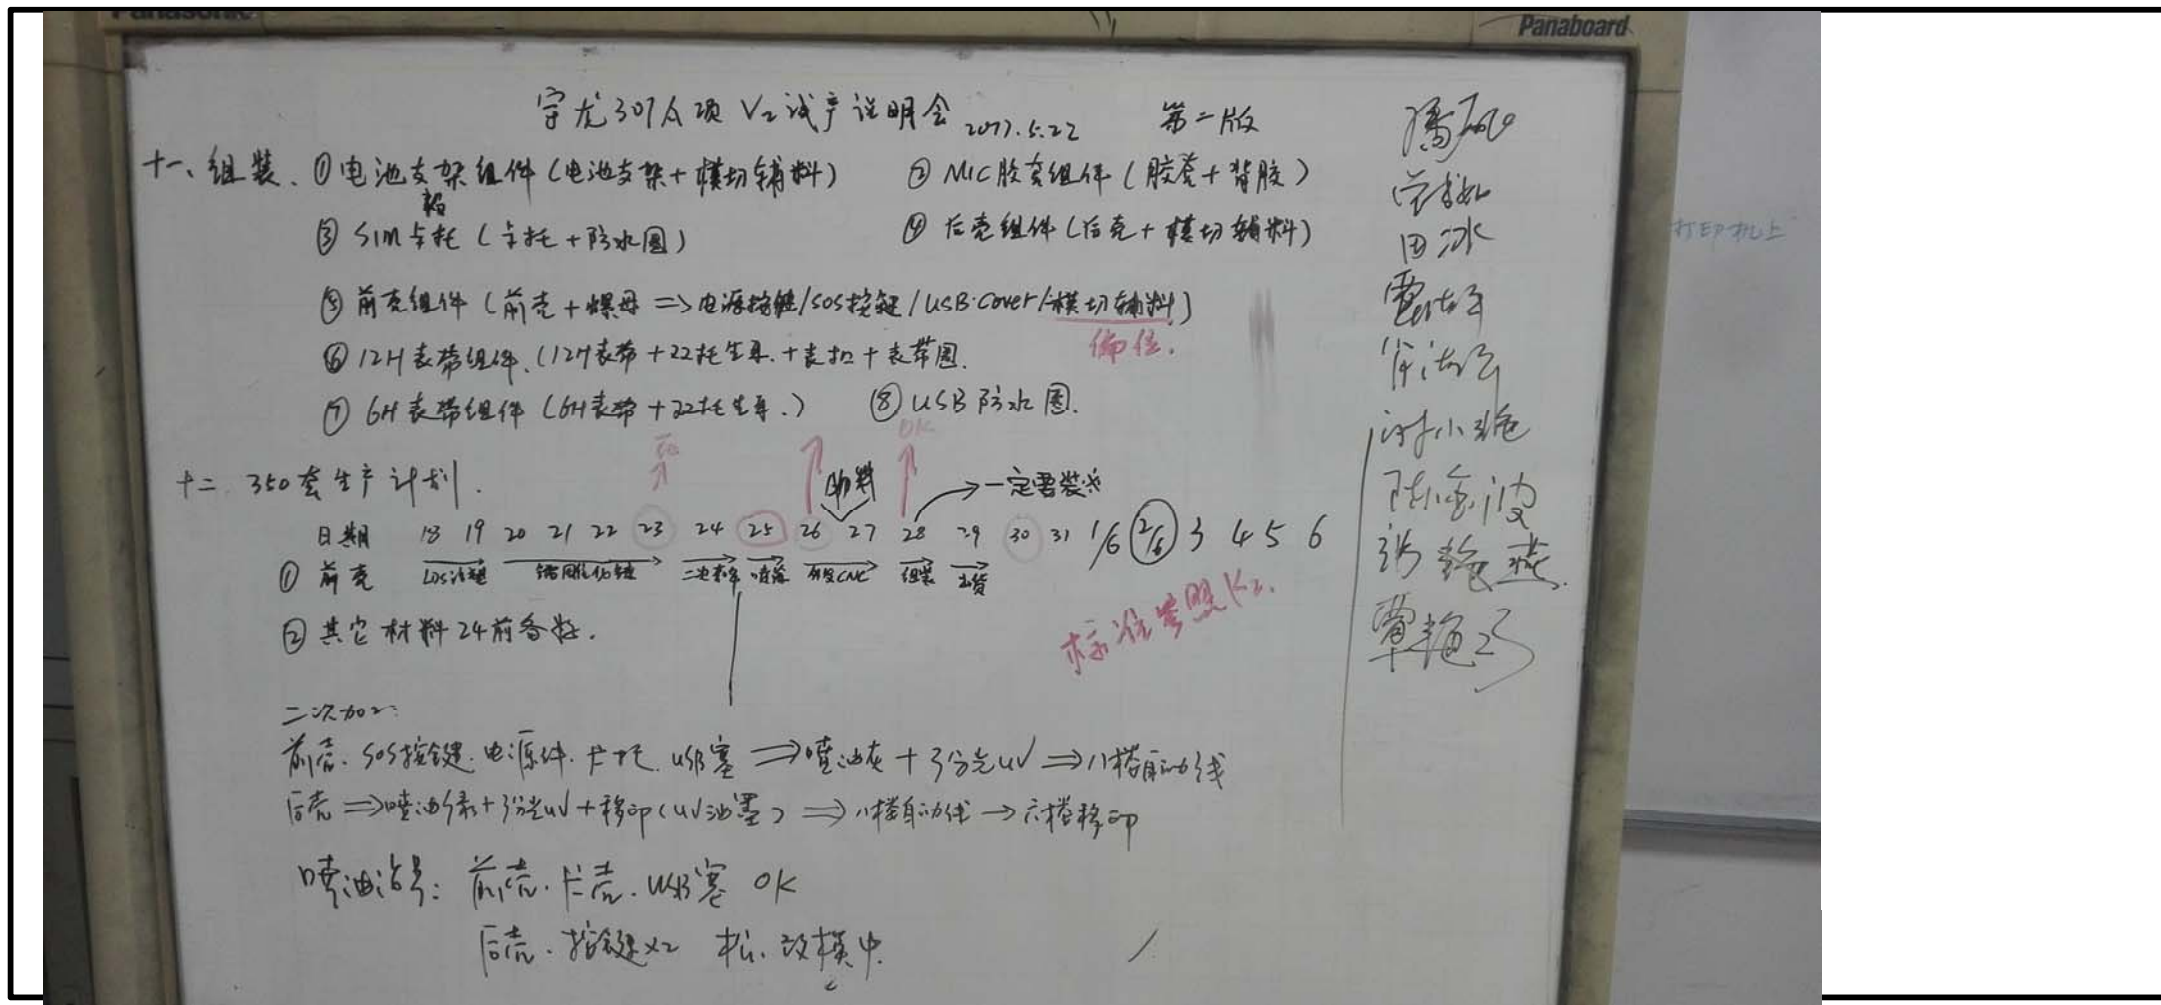 Panasonic
Panaboard
宇龙307A项 V2试产说明会 2017.5.22 第二版
十一、组装、①电池支架组件(电池支架+模切辅料) ②MIC胶套组件(胶套+背胶)
③SIM卡托(卡托+防水圈) ④后壳组件(后壳+模切辅料)
⑤前壳组件(前壳+螺母⇒电源按键/SOS按键/USB·cover/模切辅料)
偏位.
⑥12H表带组件.(12H表带+22托生耳.+表扣+表带圈.
⑦6H表带组件(6H表带+22托生耳.) ⑧USB防水圈.
OK
十二. 350套生产计划.
一定要装
日期 18 19 20 21 22 23 24 25 26 27 28 29 30 31 1/6 2/6 3 4 5 6
①前壳 LDS注塑 镭雕化镀 喷漆 CNC 组装 出货
②其它材料24前备好.
标准参照K2.
二次加工:
前壳.SOS按键.电源件.卡托.USB塞⇒喷油灰+3分光UV⇒八楼自动线
后壳⇒喷油绿+3分光UV+移印(UV油墨)⇒八楼自动线→六楼移印
喷油治具: 前壳.卡壳.USB塞 OK
后壳.按键x2 松.改模中.
田冰
谢小艳
打印机上